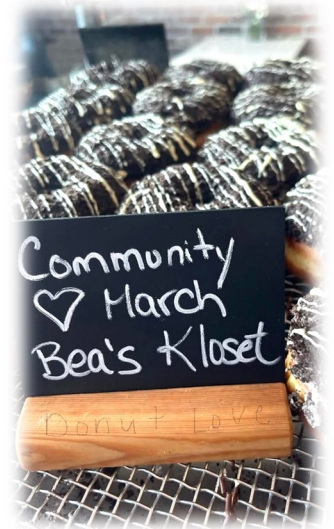 Community
♡ March
Bea's Kloset
Donut Love